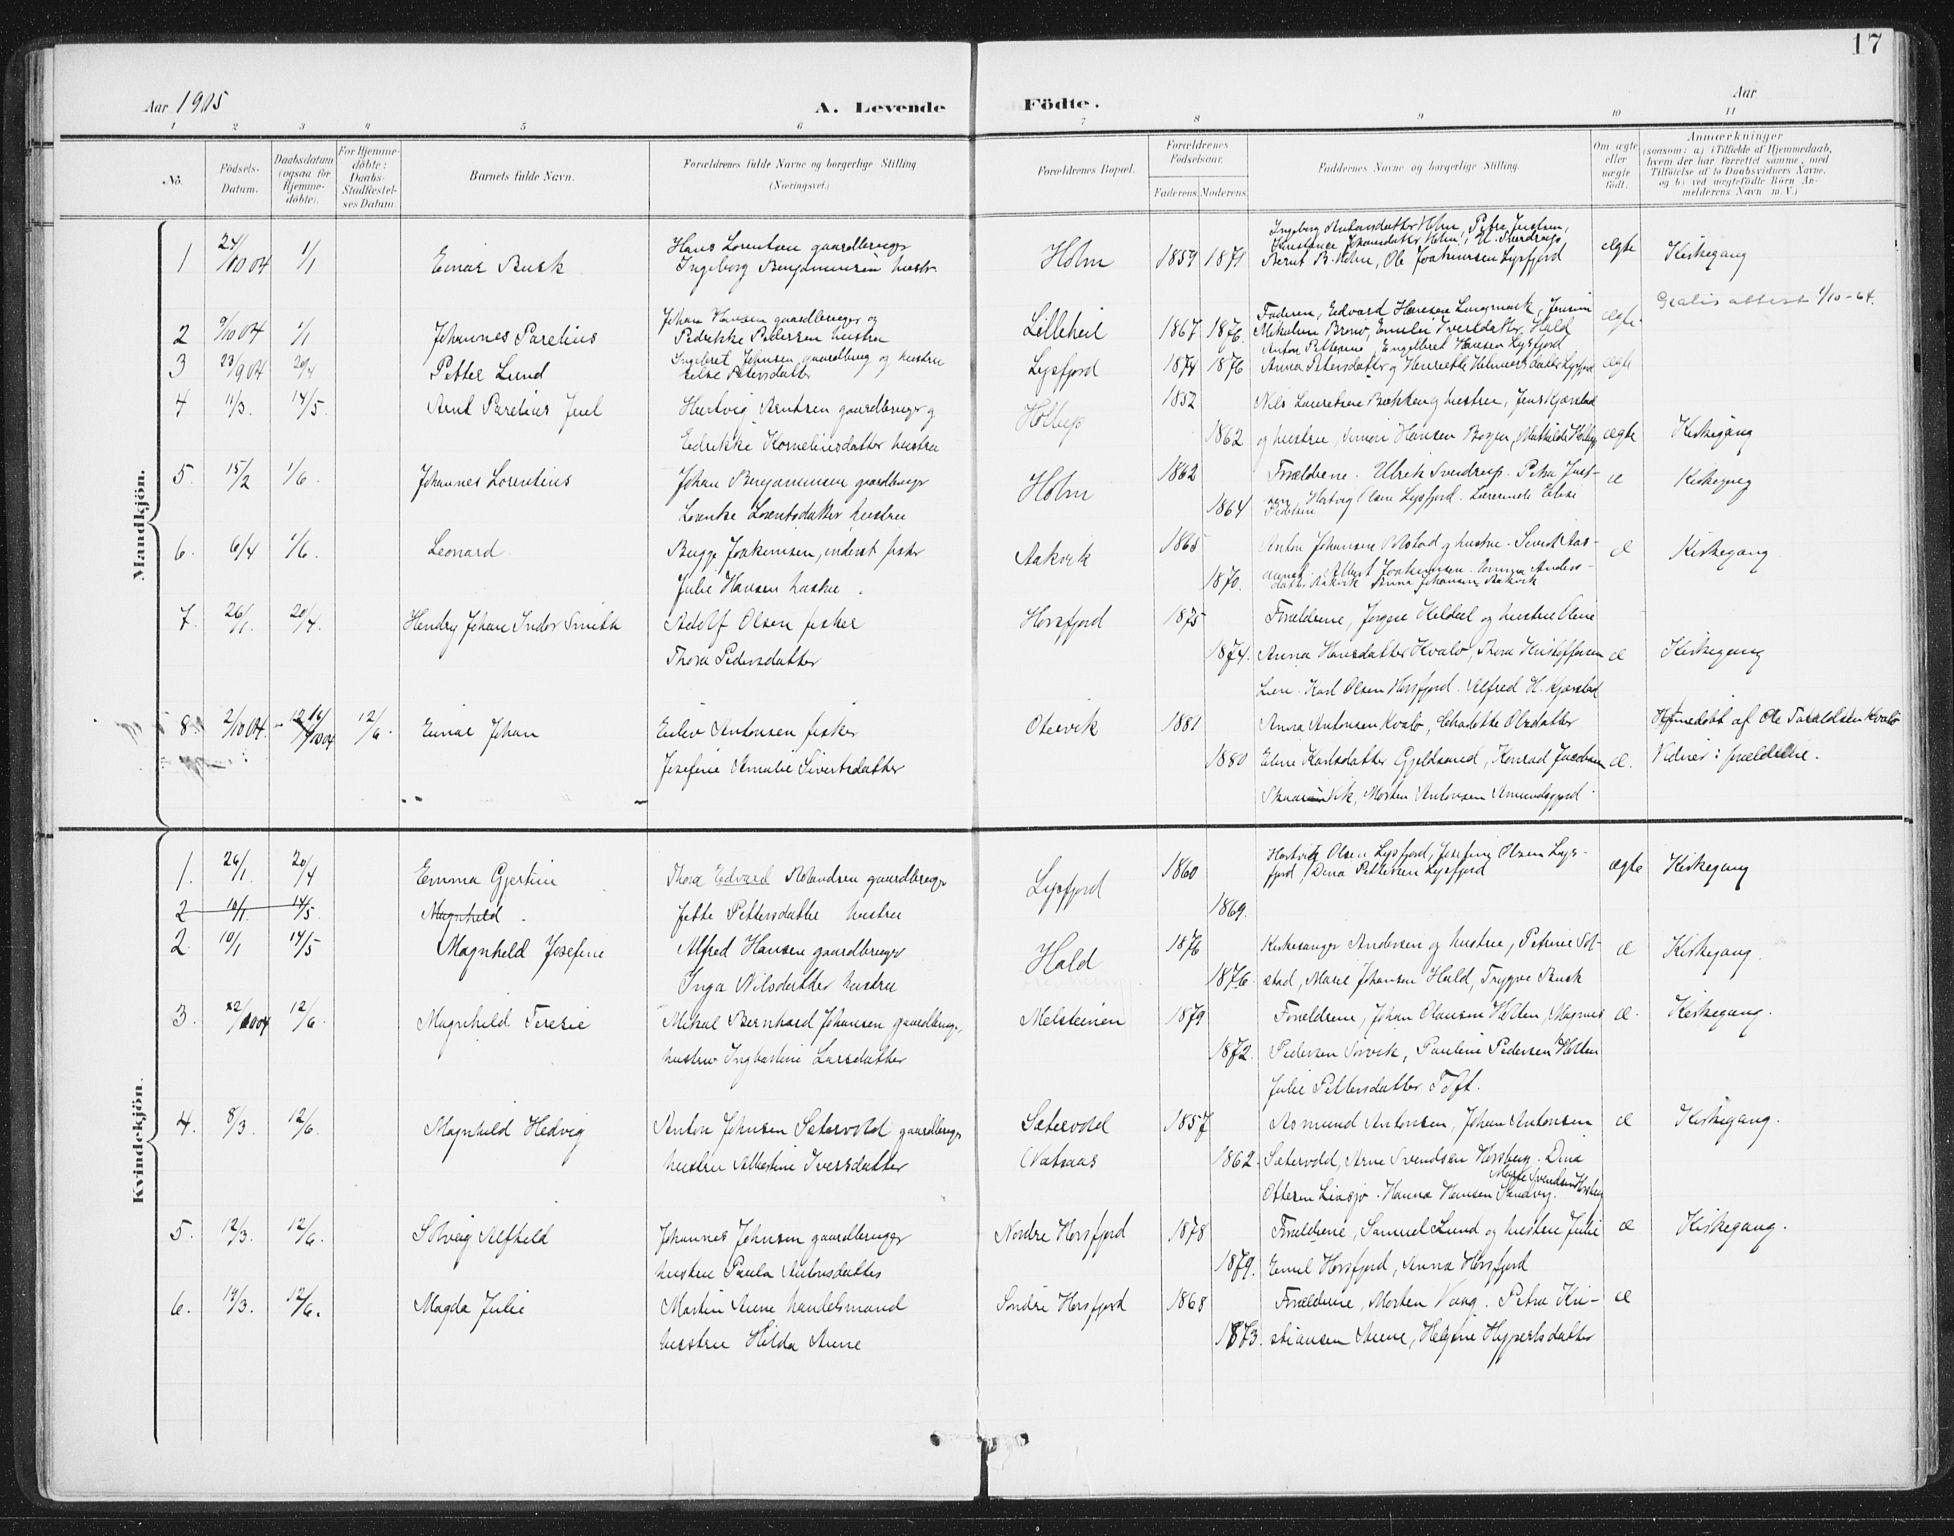 17
Aar 1905 A. Levende Födte. Aar
1 2 3 4 5 6 7 8 9 10 11
No. Födsels-Datum. Daabsdatum (ogsaa for Hjemmedöbte). For Hjemmedöbte: Daabs-Stadfæstelses Datum. Barnets fulde Navn. Forældrenes fulde Navne og borgerlige Stilling (Næringsvei.) Forældrenes Bopæl. Forældrenes Födselsaar. Faderens. Moderens. Faddernes Navne og borgerlige Stilling. Om ægte eller uægte födt. Anmærkninger (saasom: a) i Tilfælde af Hjemmedaab, hvem der har forrettet samme, med Tilföielse af to Daabsvidners Navne, og b) ved uægtefödte Börn Anmelderens Navn m. V.)
Mandkjön.
Ingeborg Antonsdatter Holm, Petra Justsen,
1 24/10 04 1/1 Einar Busk Hans Lorentsen gaardbruger Holm 1859 1871 ægte Kirkegang
Ingeborg Benjaminsen hustr. Bernt B. Holm, Ole Joakimsen Lysfjord
Gratis attest 1/10-64.
2 9/10 04 1/1 Johannes Parelius Johan Hansen gaardbruger og Lilleheil 1867 1876. Faderen, Edvard Hansen ægte
Pedrikke Pedersen hustru Emelie Hald
Anton Engelbret Hansen Lysfjord
3 23/9 04 20/4 Petter Lund Ingebret Johnsen gaardbrug og hustru Lysfjord 1874 1876 Anna Petersdatter og ægte
Else Petersdatter
4 11/3. 14/5. Arnt Parelius Juel Hartvig Arntsen gaardbruger og 1852 Nils og hustru, Jens Kjærstad
hustru 1862 og hustru, Simon Hansen ægte Kirkegang
5. 15/2 1/6. Johannes Lorentius Johan Benjaminsen gaardbruger Holm 1862 Forældrene. Ulrik Sverdrup. Petra Just- æ Kirkegang
Lorentse Lorentsdatter hustru 1864 sen, Hartvig Olsen Lysfjord. Lærerinde Elise
Pedersen
6. 6/4 1/6. Leonard Bugge Joakimsen, inderst fisker Aakvik 1865 Anton Johansen og hustru. Sivert Aas- æ Kirkegang
Julie Hansen hustru. 1870. Albert Joakimsen. Anders-
datter Aakvik Anna Johansen Aakvik
7. 26/1. 20/4. Hendry Johan Indor Smith Adolf Olsen fisker Horsfjord 1875 Forældrene, Jørgen Hildal og hustru Oline
Thora Pedersdatter 1874. Anna Hansdatter Kvalø, Thora Kristoffersen æ Kirkegang
Lien. Karl Olsen Horsfjord. Alfred H. Kjærstad
8. 2/10 04. 12/6. Einar Johan Eiliv Antonsen fisker Otervik 1881 Anna Antonsen Kvalø, Charlotte Olsdatter Hjemedøbt af Ole Taraldsen Kvalø
Josefine Amalie Sivertsdatter 1880 Eline Karlsdatter Gjeldsund, Konrad Jacobsen æ. Vidner: forældrene.
Morten Antonsen Amundsgjord
Kvindekjön.
1. 26/1. 20/4 Emma Gjertine Thore Edvard Rolandsen gaardbruger Lysfjord 1860 Hartvig Olsen Lysfjord, Josefine Olsen Lys- ægte Kirkegang
fjord, Dina Pettersen Lysfjord
2 10/1 14/5. Magnhild. Jette Pettersdatter hustru 1869.
2. 10/1 14/5 Magnhild Josefine Alfred Hansen gaardbruger Hald 1876 Kirkesanger Andersen og hustru, Petrine Sol- æ Kirkegang.
Inga Nilsdatter hustru 1876. stad, Marie Johansen Hald, Trygve Busk
3. 22/10 04 12/6. Magnhild Teresie Mikal Bernhard Johansen gaardbruger, Melsteinen 1879 Forældrene, Johan Olausen Holten, Magnus æ. Kirkegang.
hustru Ingbertine Larsdatter 1872. Pedersen Torvik, Pauline Pedersen Holten
Julie Pettersdatter Toft.
4. 8/3. 12/6. Magnhild Hedvig Anton Johnsen Sætervold gaardbruger Sætervold 1857 Asmund Antonsen, Johan Antonsen æ Kirkegang.
hustru Albertine Iversdatter Vatsaas 1862. Sætervold, Arne Svendsen Horsberg. Dina
Marte Svendsen Horsberg
Ottersen Liasjø. Hanna Hansen Sandvig.
5. 12/3. 12/6. Solveig Alfhild Johannes Johnsen gaardbruger Nordre Horsfjord 1878 Forældrene, Samuel Lund og hustru Julie æ Kirkegang.
hustru Paula Antonsdatter 1879. Emil Horsfjord, Anna Horsfjord
6. 19/3. 12/6. Magda Julie Martin Arne handelsmand Søndre Horsfjord 1868 Forældrene, Morten Vaag. Petra Kri- æ
hustru Hilda Arne 1873. stiansen Arne, Helfine Hypertsdatter